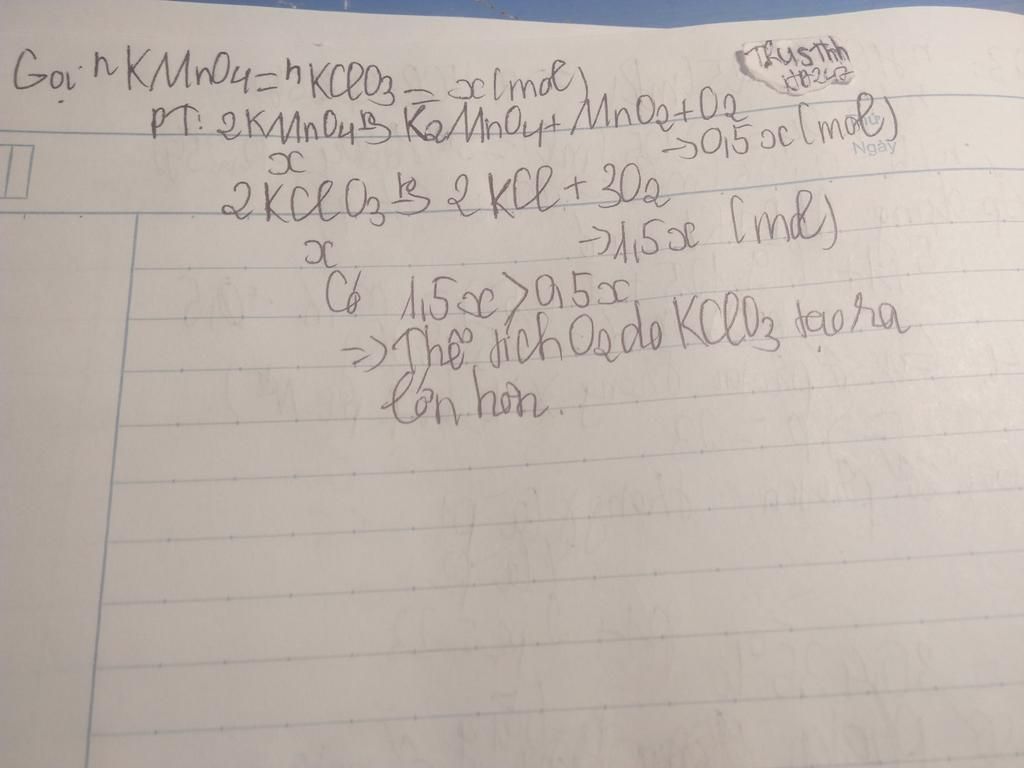 Gọi nKMnO4 = nKClO3 = x (mol)
PT: 2KMnO4 t° K2MnO4 + MnO2 + O2
x → 0,5x (mol)
Ngày
2KClO3 t° 2KCl + 3O2
x → 1,5x (mol)
Có 1,5x > 0,5x
=> Thể tích O2 do KClO3 tạo ra
lớn hơn.